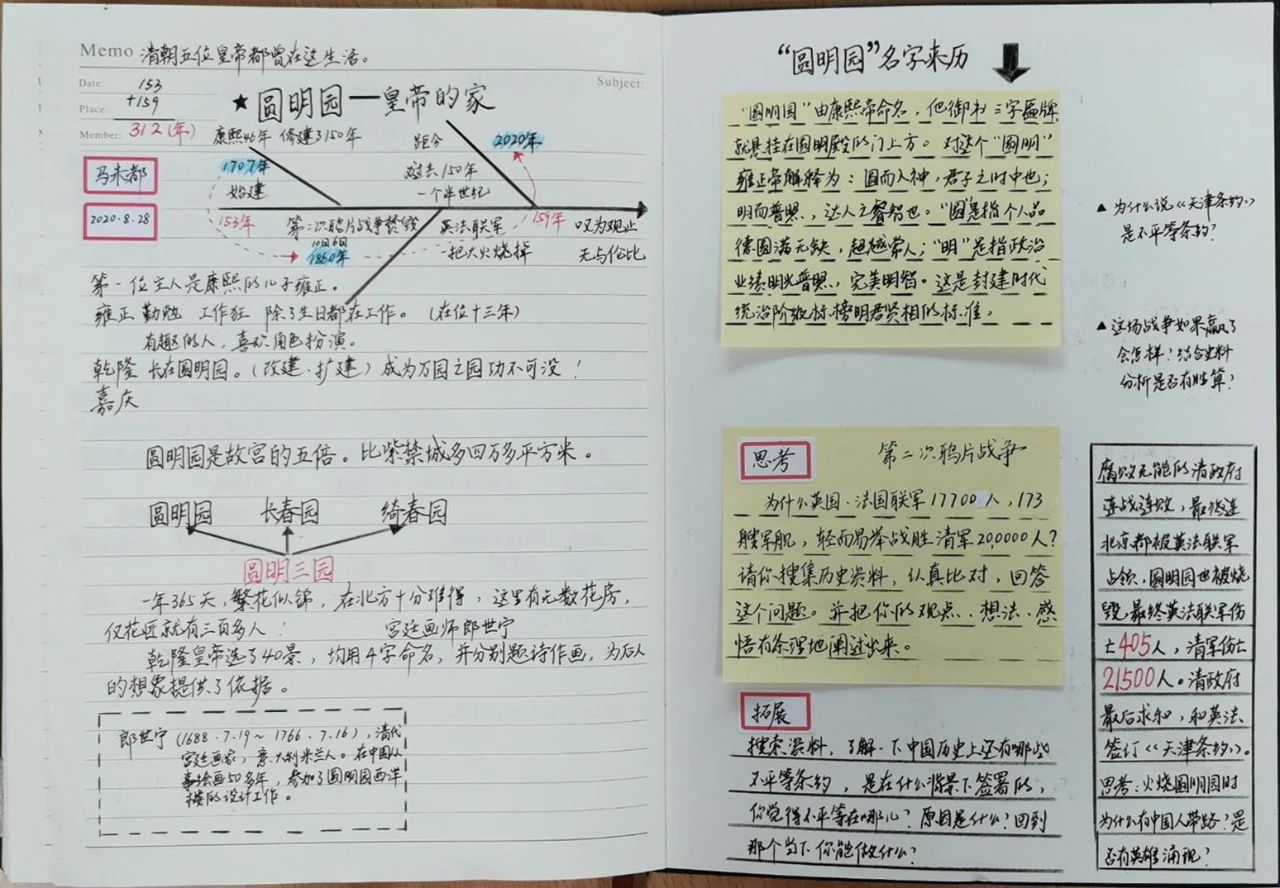 Memo 清朝五位皇帝都曾在这生活。
Date: 153
Subject:
Place: +159
Member: 312(年)
★圆明园—皇帝的家
康熙46年 修建了150年
距今
2020年
冯未都
1707年
过去150年
始建
一个半世纪
2020·8·28
153年
第二次鸦片战争
英法联军
159年
叹为观止
10月6日
1860年
一把大火烧掉
无与伦比
第一位主人是康熙的儿子雍正。
雍正 勤勉 工作狂 除了生日都在工作。(在位十三年)
有趣的人,喜欢角色扮演。
乾隆 长在圆明园。(改建·扩建)成为万园之园功不可没!
嘉庆
圆明园是故宫的五倍。比紫禁城多四万多平方米。
圆明园 长春园 绮春园
圆明三园
一年365天,繁花似锦,在北方十分难得,这里有无数花房,
仅花匠就有三百多人! 宫廷画师郎世宁
乾隆皇帝选了40景,均用4字命名,并分别题诗作画,为后人
的想象提供了依据。
郎世宁(1688·7·19~1766·7·16),清代
宫廷画家,意大利米兰人。在中国从
事绘画50多年,参加了圆明园西洋
楼的设计工作。
“圆明园”名字来历
“圆明园”由康熙帝命名,他御书三字匾牌
就悬挂在圆明殿的门上方。对这个“圆明”
雍正帝解释为:圆而入神,君子之时中也;
明而普照,达人之睿智也。“圆”是指个人品
德圆满无缺,超越常人;“明”是指政治
业绩明光普照,完美明智。这是封建时代
统治阶级标榜明君贤相的标准。
▲为什么说《天津条约》
是不平等条约?
▲这场战争如果赢了
会怎样?结合史料
分析是否有胜算?
思考
第二次鸦片战争
为什么英国、法国联军17700人,173
艘军舰,轻而易举战胜清军200000人?
请你搜集历史资料,认真比对,回答
这个问题。并把你的观点、想法、感
悟有条理地阐述出来。
拓展
搜索资料,了解一下中国历史上还有哪些
不平等条约,是在什么背景下签署的,
你觉得不平等在哪儿?原因是什么?回到
那个当下你能做什么?
腐败无能的清政府
连战连败,最终连
北京都被英法联军
占领,圆明园也被烧
毁,最终英法联军伤
亡405人,清军伤亡
21500人。清政府
最后求和,和英法
签订《天津条约》。
思考:火烧圆明园时
为什么有中国人带路?是
否有英雄涌现?